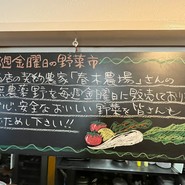 週金曜日の野菜市
店の契約農家「春木農場」さんの
農薬野菜を毎週金曜日に販売しており
心、安全なおいしい野菜を皆さんも
ためし下さい!!